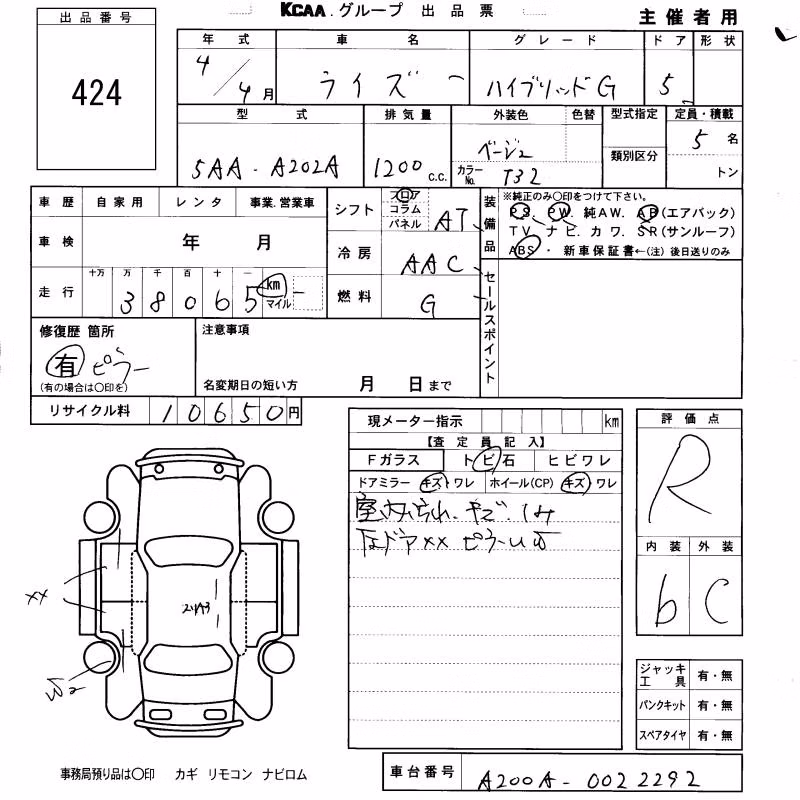 KCAA.グループ 出品票
主催者用
出品番号
424
年式 車名 グレード ドア 形状
4/4月 ライズ ハイブリッドG 5
型式 排気量 外装色 色替 型式指定 定員・積載
5AA-A202A 1200 c.c. ベージュ 類別区分 5名
カラーNo. T32 トン
車歴 自家用 レンタ 事業.営業車
シフト フロア コラム パネル AT
装備品 ※純正のみ〇印をつけて下さい。
PS. PW. 純AW. AB(エアバック)
TV. ナビ. カワ. SR(サンルーフ)
ABS・ 新車保証書←(注)後日送りのみ
車検 年 月
冷房 AAC
走行 十万 万 千 百 十 一
38065 km マイル
燃料 G
セールスポイント
修復歴 箇所
有 ピラー
(有の場合は〇印を)
注意事項
名変期日の短い方 月 日まで
リサイクル料 10650円
現メーター指示 km
【査定員記入】
Fガラス トビ石 ヒビワレ
ドアミラー キズ ワレ ホイール(CP) キズ ワレ
ピラー
評価点
R
内装 外装
b C
XX
ジャッキ工具 有・無
パンクキット 有・無
スペアタイヤ 有・無
事務局預り品は〇印 カギ リモコン ナビロム
車台番号 A200A-0022292